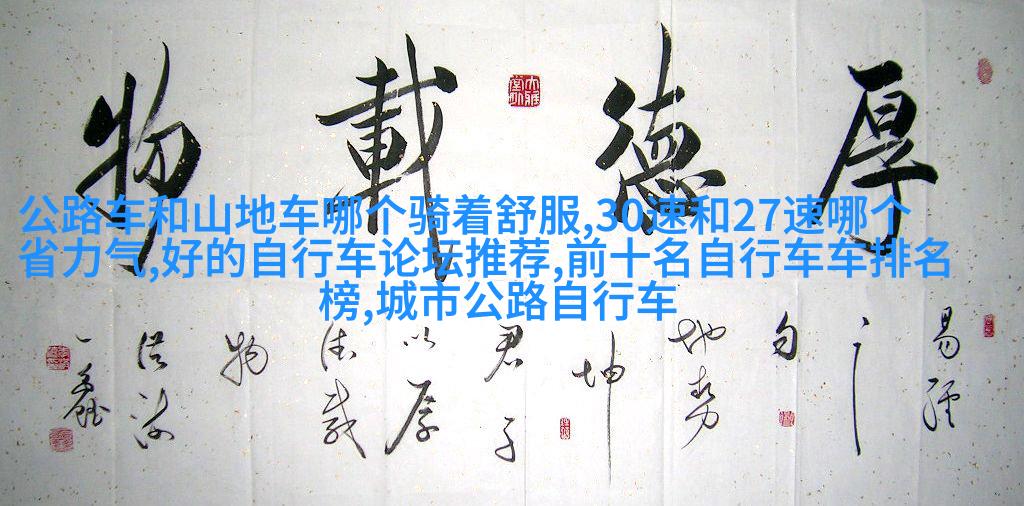 厚德載物
公路车和山地车哪个骑着舒服,30速和27速哪个
省力气,好的自行车论坛推荐,前十名自行车车排名
榜,城市公路自行车
易经
之
句
地势
坤
君子
以厚
德载
物